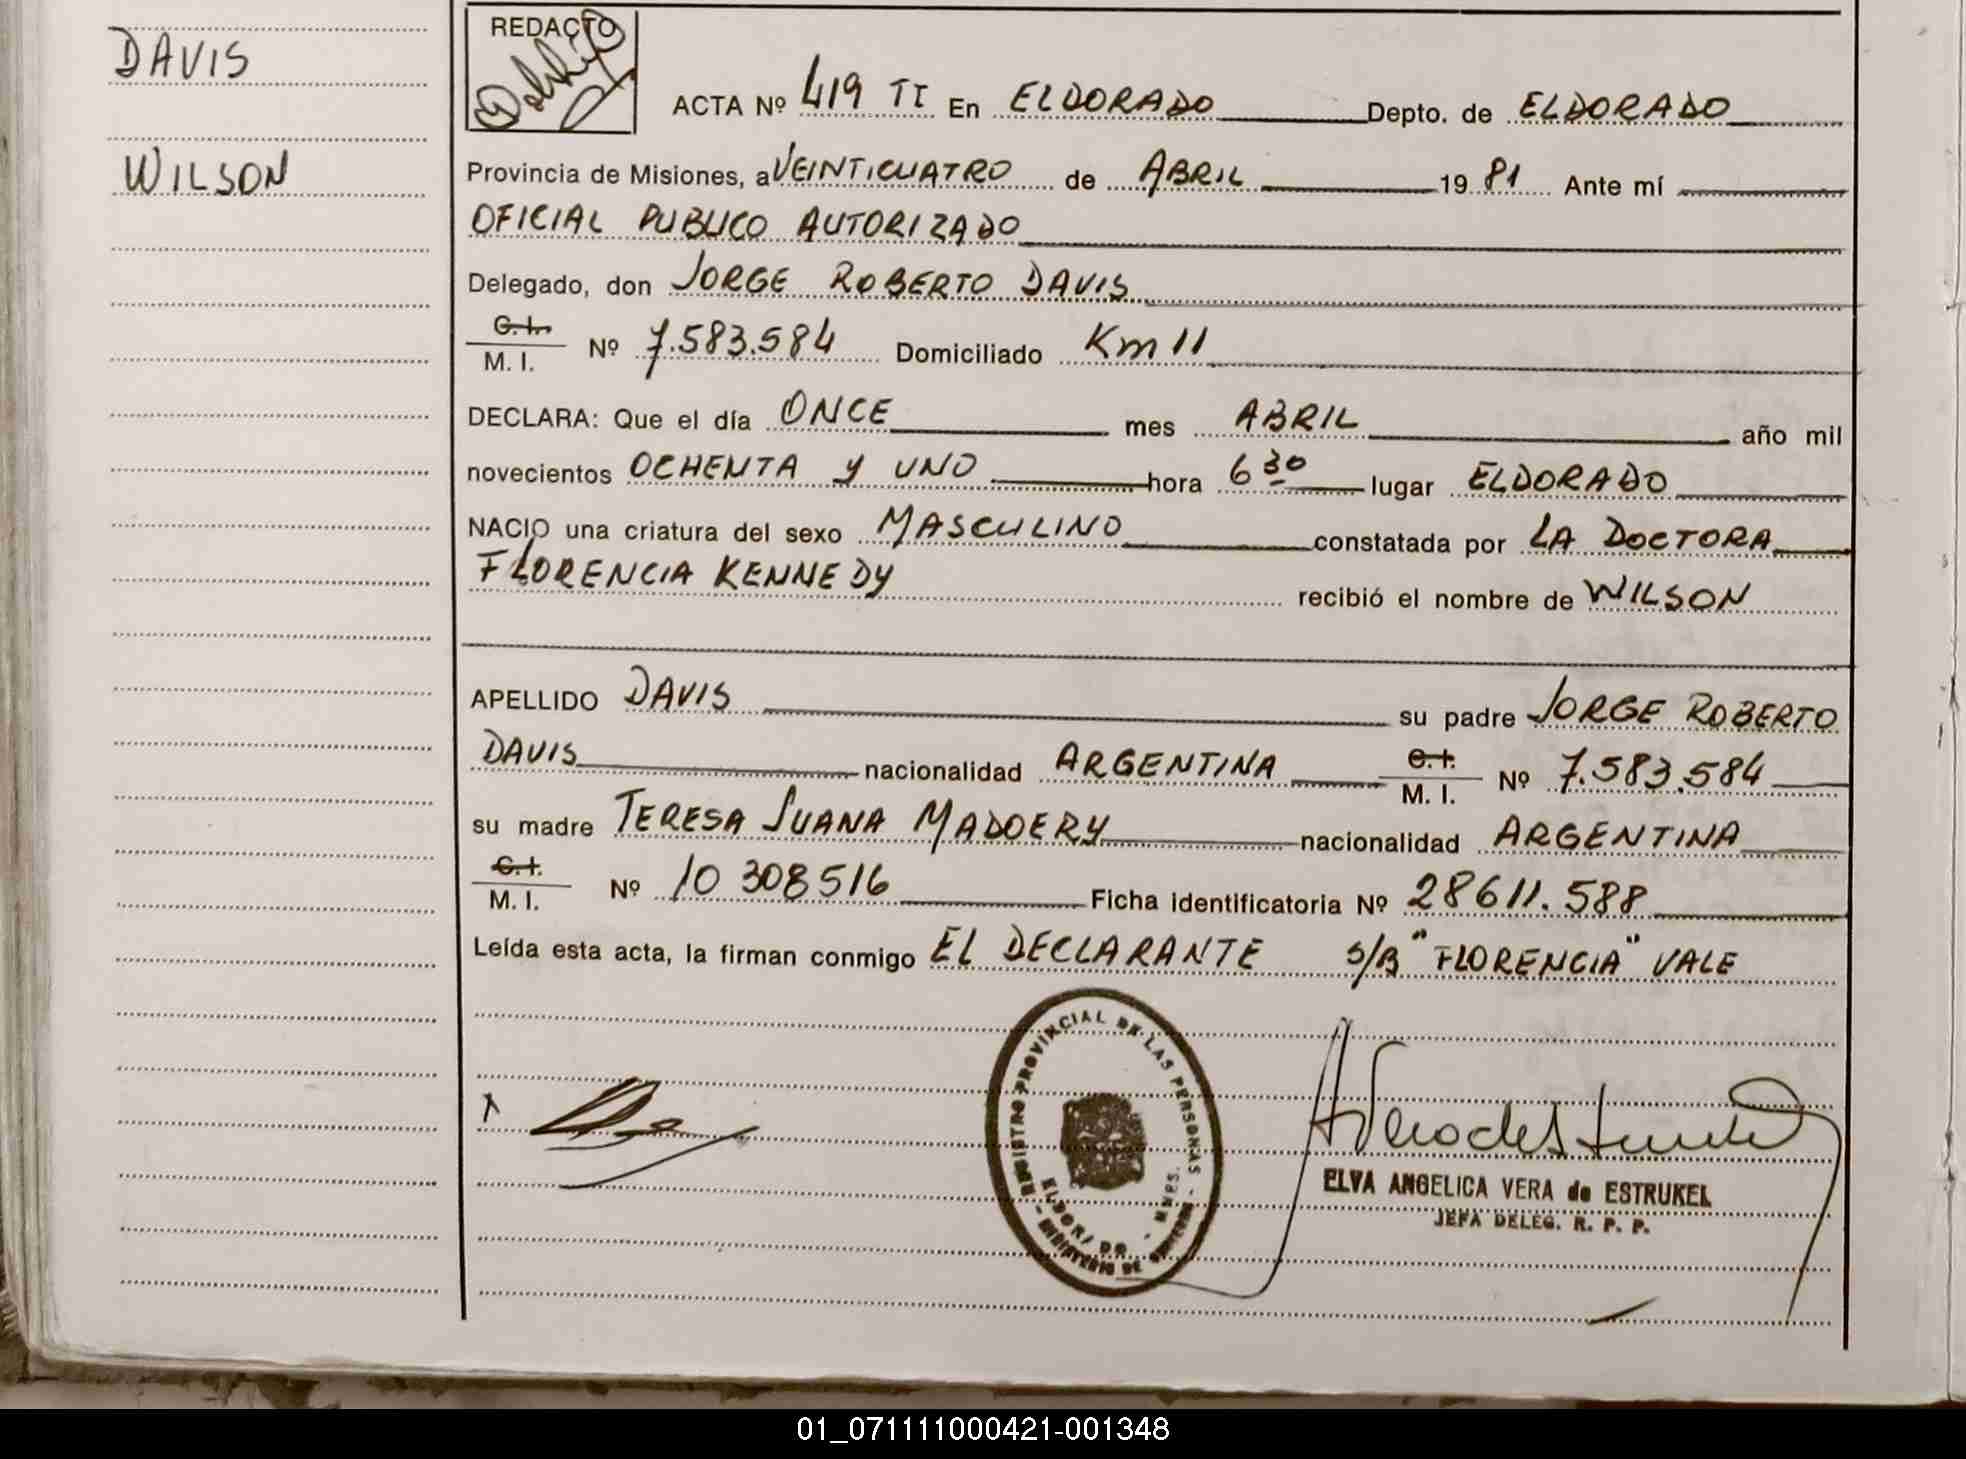 DAVIS
WILSON
REDACTO
ACTA Nº 419 TI En ELDORADO Depto. de ELDORADO
Provincia de Misiones, a VEINTICUATRO de ABRIL 19 81 Ante mí
OFICIAL PUBLICO AUTORIZADO
Delegado, don JORGE ROBERTO DAVIS
C. I.
M. I. Nº 7.583.584 Domiciliado Km 11
DECLARA: Que el día ONCE mes ABRIL año mil
novecientos OCHENTA y UNO hora 6 30 lugar ELDORADO
NACIO una criatura del sexo MASCULINO constatada por LA DOCTORA
FLORENCIA KENNEDY recibió el nombre de WILSON
APELLIDO DAVIS su padre JORGE ROBERTO
DAVIS nacionalidad ARGENTINA C. I. M. I. Nº 7.583.584
su madre TERESA JUANA MADOERY nacionalidad ARGENTINA
C. I.
M. I. Nº 10 308516 Ficha identificatoria Nº 28611.588
Leída esta acta, la firman conmigo EL DECLARANTE S/B "FLORENCIA" VALE
REGISTRO PROVINCIAL DE LAS PERSONAS
ELDORADO - MNES.
MINISTERIO DE GOBIERNO
ELVA ANGELICA VERA de ESTRUKEL
JEFA DELEG. R. P. P.
01_071111000421-001348